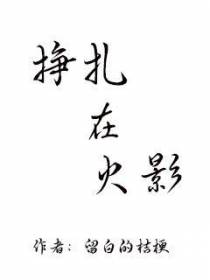 挣扎
在
火影
作者：留白的桔梗